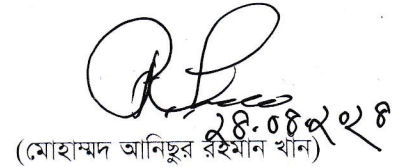 ২৪.০৪.২০২৪
(মোহাম্মদ আনিছুর রহমান খান)